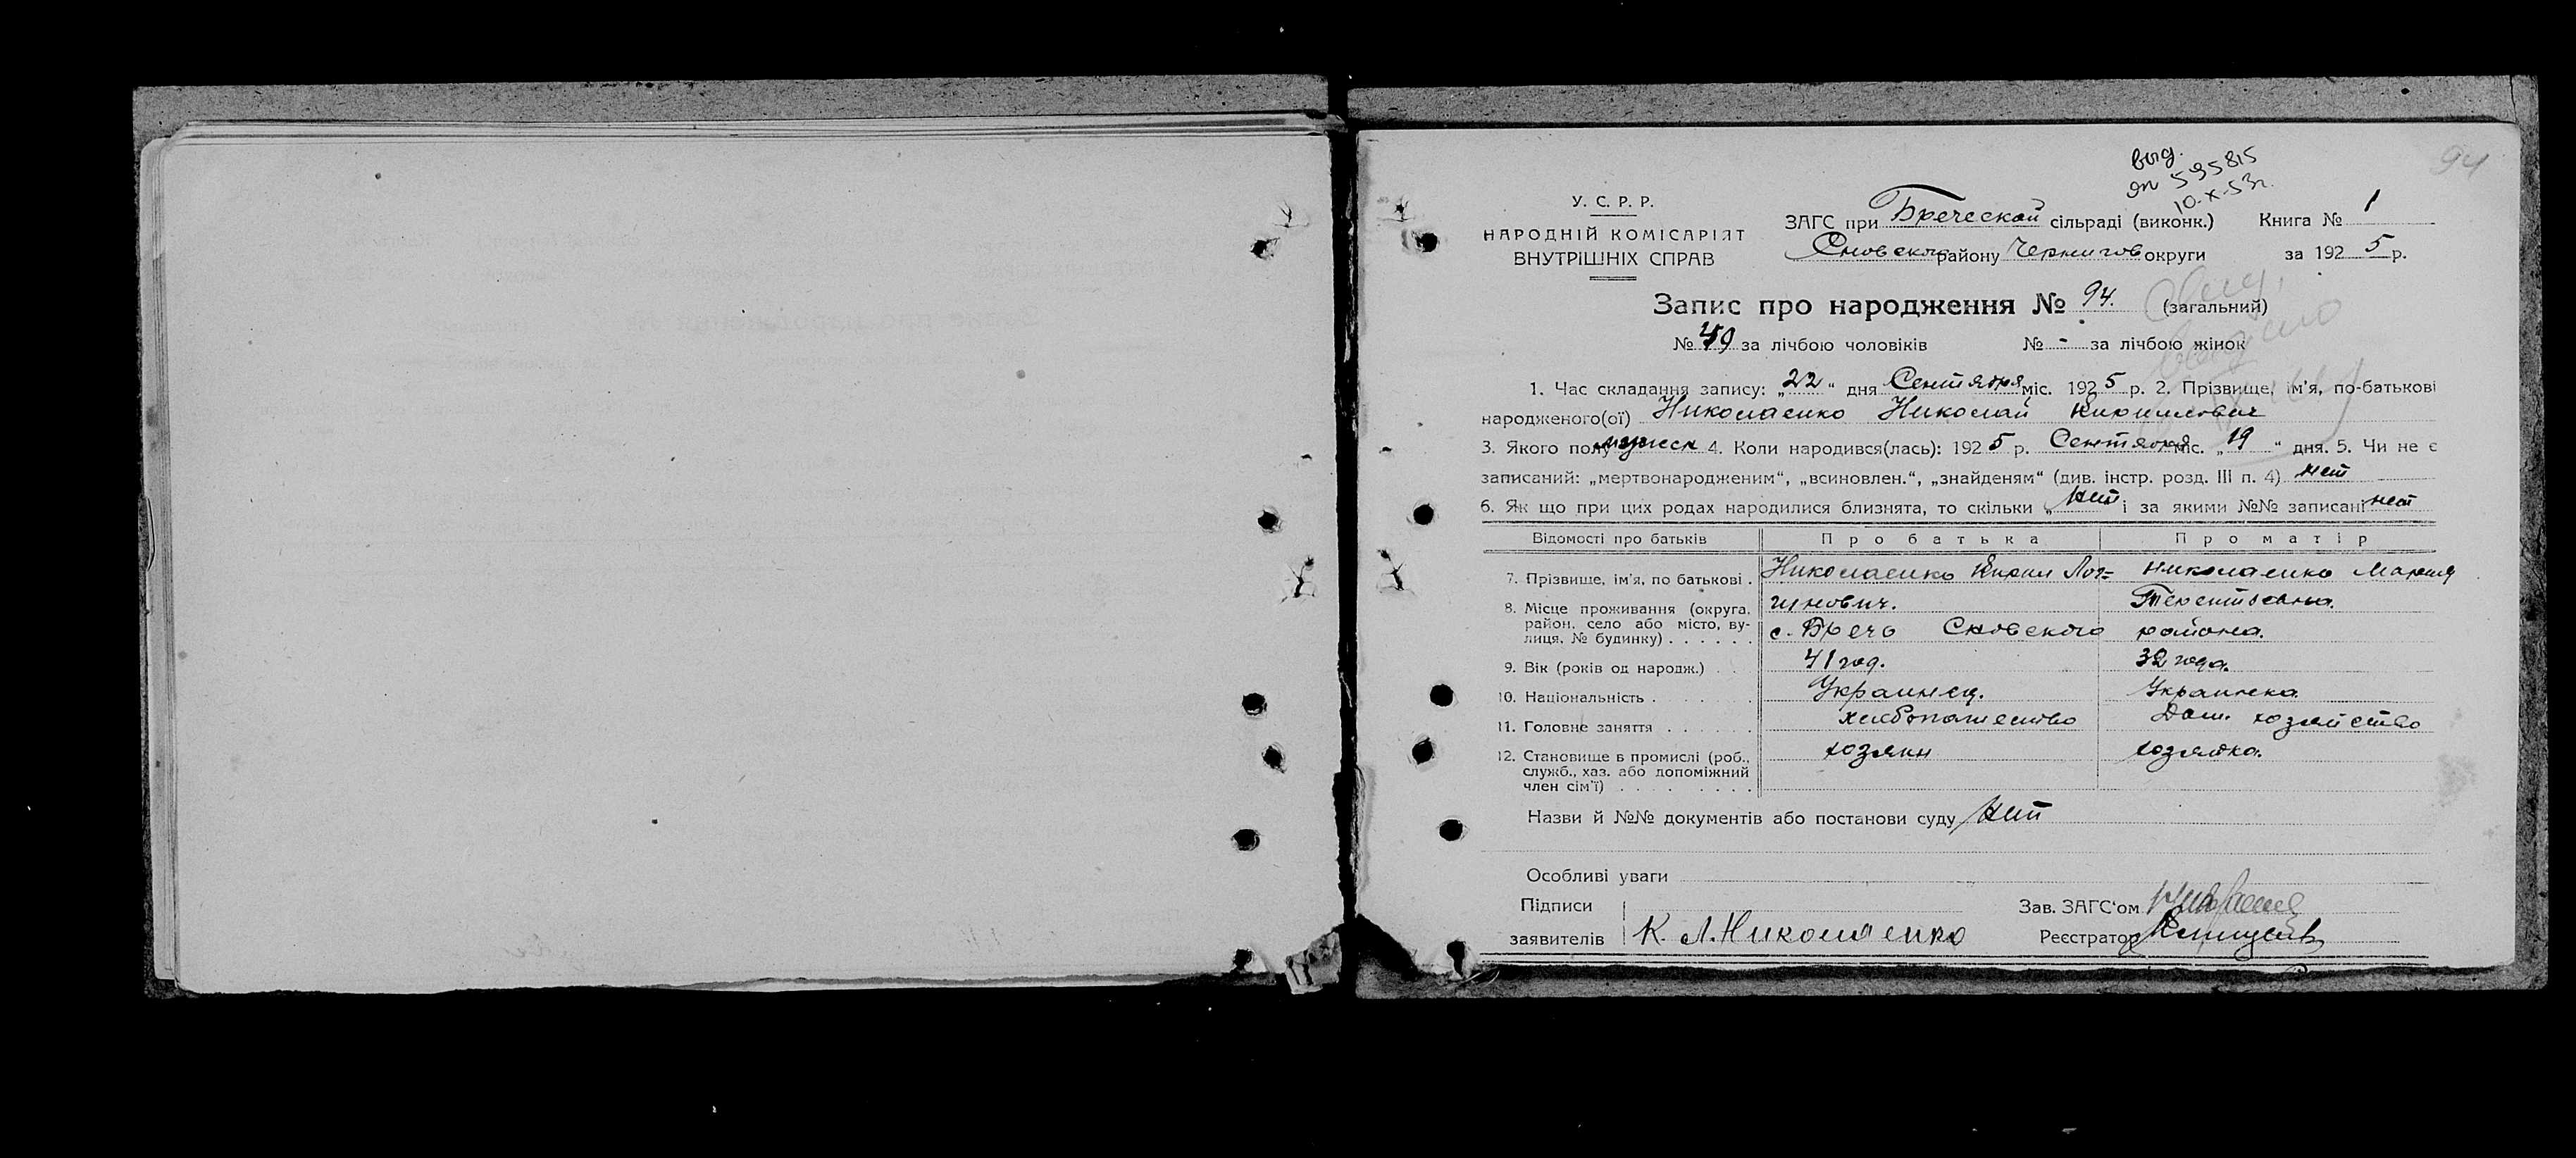 94
выд.
яп 595815
10-X-53г.
У. С. Р. Р.
НАРОДНІЙ КОМІСАРІЯТ
ВНУТРІШНІХ СПРАВ
ЗАГС при Бреческой сільраді (виконк.) Книга № 1
Сновского району Чернигов округи за 1925 р.
Запис про народження № 94. (загальний)
№ 49 за лічбою чоловіків № - за лічбою жінок
1. Час складання запису: „22“ дня Сентября міс. 1925 р. 2. Прізвище, ім'я, по-батькові
народженого(ої) Николаенко Николай Кирилович
3. Якого полу мужеск 4. Коли народився(лась): 1925 р. Сентября міс. „19“ дня. 5. Чи не є
записаний: „мертвонародженим“, „всиновлен.“, „знайденям“ (див. інстр. розд. III п. 4) нет
6. Як що при цих родах народилися близнята, то скільки „нет і за якими №№ записані нет
Відомості про батьків Про батька Про матір
7. Прізвище, ім'я, по батькові . Николаенко Кирил Лог= Николаенко Мария
гинович. Терентьевна.
8. Місце проживання (округа, район, село або місто, вулиця, № будинку) . . . . . . с. Бречь Сновского района.
9. Вік (років од народж.) . . 41 год. 32 года.
10. Національність . . . . Украинец. Украинка
11. Головне заняття . . . . . . хлебопашество Дом. хозяйство
12. Становище в промислі (роб., служб., хаз. або допоміжний член сім'ї) . . . . . . . . хозяин хозяйка.
Назви й №№ документів або постанови суду нет
Особливі уваги
Підписи Зав. ЗАГС'ом
заявителів К. Л. Николаенко Реєстратор